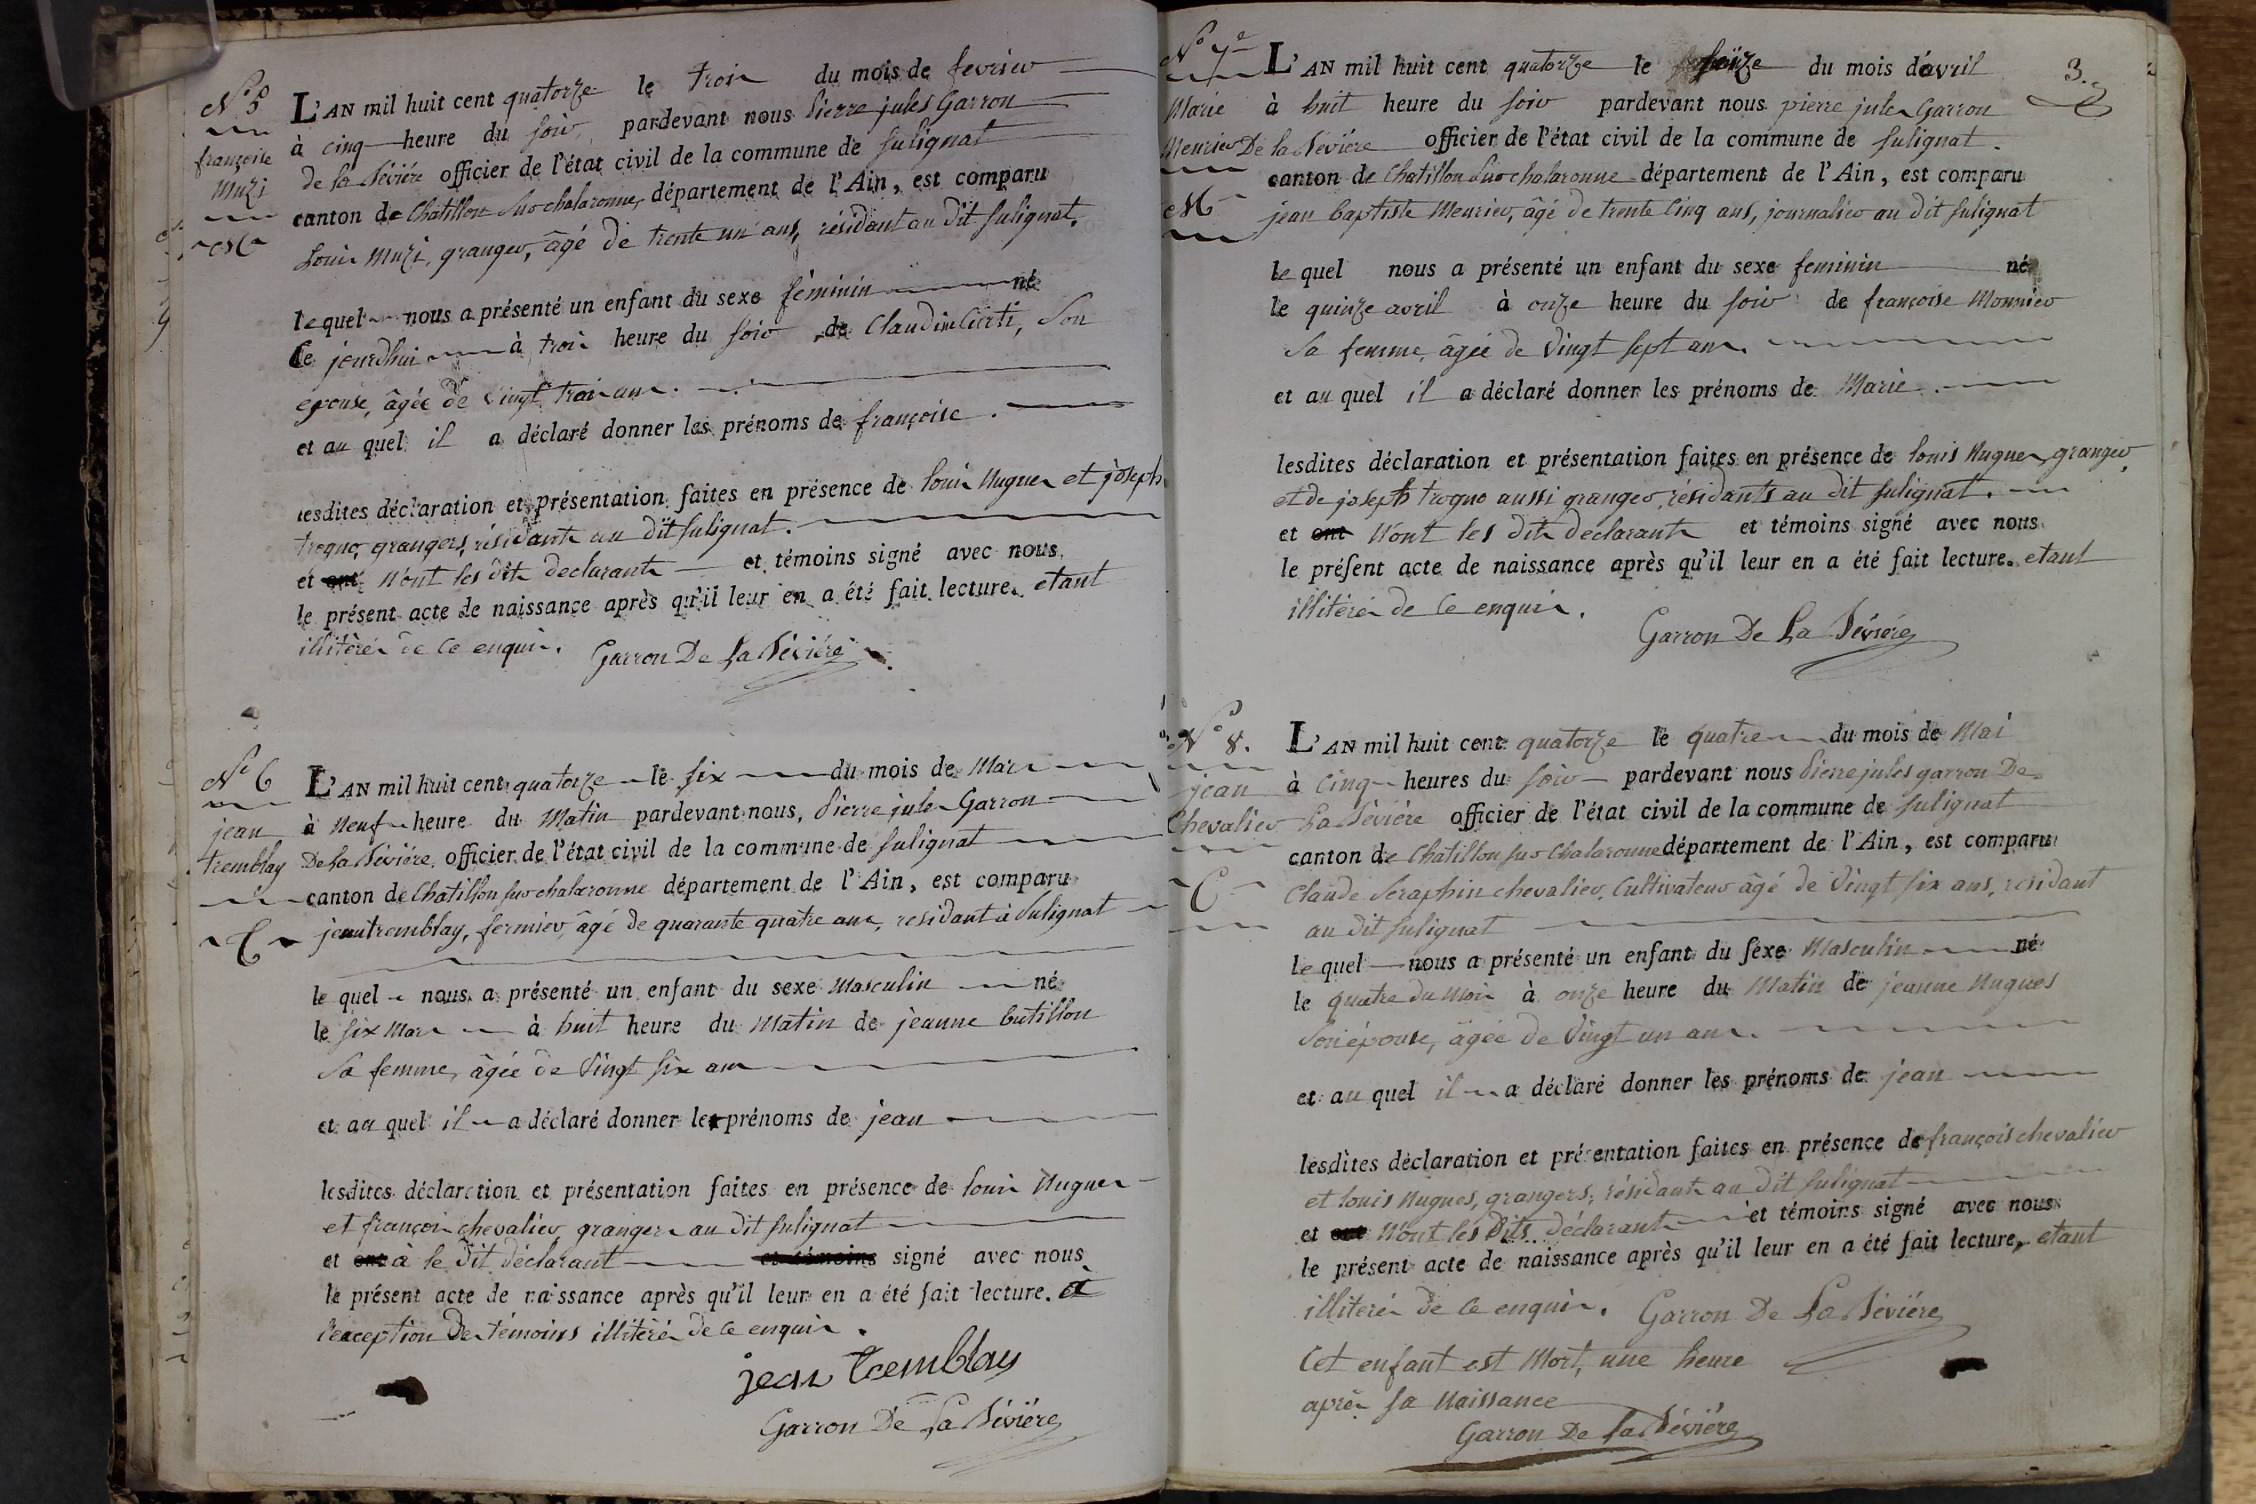 N.° 5
françoise
Muzi
L'AN mil huit cent quatorze le trois du mois de fevrier
à cinq heure du soir pardevant nous Pierre jules Garron
de la Séviére officier de l'état civil de la commune de Sulignat
canton de Chatillon sur chalaronne, département de l'Ain, est comparu
Louis Muzi, granger, âgé de trente un ans, résidant au dit Sulignat.
le quel nous a présenté un enfant du sexe féminin né
Ce jourdhui à trois heure du soir de Claudine Cierti, Son
epouse, âgée de vingt trois ans.
et au quel il a déclaré donner les prénoms de françoise.
lesdites déclaration et présentation faites en présence de louis Nugues et joseph
trogno, grangers, résidants au dit Sulignat.
et ont N'ont les dits declarants et témoins signé avec nous
le présent acte de naissance après qu'il leur en a été fait lecture, etant
illitérés de ce enquis. Garron De La Séviére
N.° 6
jean
tremblay
L'AN mil huit cent quatorze le six du mois de Mars
à Neuf heure du Matin pardevant nous, Pierre jules Garron
De la Séviére, officier de l'état civil de la commune de Sulignat
canton de Chatillon sur chalaronne département de l'Ain, est comparu
jean tremblay, fermier, âgé de quarante quatre ans, residant à Sulignat
le quel nous a présenté un enfant du sexe Masculin né
le six Mars à huit heure du Matin de jeanne butillon
Sa femme, âgée de Vingt six ans
et au quel il a déclaré donner les prénoms de jean
lesdites déclaration et présentation faites en présence de louis Nugues
et françois chevalier, grangers au dit Sulignat
et ont à le dit déclarant et témoins signé avec nous
le présent acte de naissance après qu'il leur en a été fait lecture. à
l'exception Des témoins illitérés de ce enquis.
jean tremblay
Garron De La Séviére
N.° 7e
Marie
Meurier
L'AN mil huit cent quatorze le seize du mois d'avril
3.
à huit heure du soir pardevant nous pierre jules Garron
De la Séviére officier de l'état civil de la commune de Sulignat.
canton de Chatillon Sur chalaronne département de l'Ain, est comparu
jean baptiste Meurier, âgé de trente Cinq ans, journalier au dit Sulignat
le quel nous a présenté un enfant du sexe feminin né
le quinze avril à onze heure du soir de françoise Monnier
Sa femme, âgée de Vingt sept ans.
et au quel il a déclaré donner les prénoms de Marie.
lesdites déclaration et présentation faites en présence de louis Nugues, granger,
et de joseph trogno aussi granger, résidants au dit Sulignat.
et ont N'ont les dits declarants et témoins signé avec nous
le présent acte de naissance après qu'il leur en a été fait lecture. etant
illitérés de ce enquis.
Garron De La Séviére
N.° 8.
jean
Chevalier
C
L'AN mil huit cent quatorze le quatre du mois de Mai
à Cinq heures du soir pardevant nous Pierre jules garron De
La Séviére officier de l'état civil de la commune de Sulignat
canton de Chatillon sur Chalaronne département de l'Ain, est comparu
Claude Seraphin chevalier, Cultivateur âgé de Vingt six ans, residant
au dit Sulignat
le quel nous a présenté un enfant du sexe Masculin né
le quatre du Mois à onze heure du Matin de jeanne Nugues
Son épouse, âgée de Vingt un ans.
et au quel il a déclaré donner les prénoms de jean
lesdites déclaration et présentation faites en présence de françois chevalier
et louis Nugues, grangers, résidants au dit Sulignat
et ont N'ont les Dits déclarants et témoins signé avec nous
le présent acte de naissance après qu'il leur en a été fait lecture, etant
illiterés de ce enquis. Garron De La Séviére
Cet enfant est Mort, une heure
après sa Naissance
Garron De la Séviére